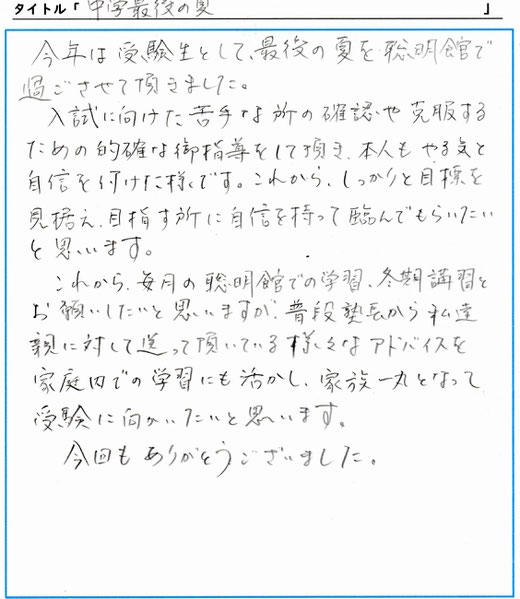 タイトル「中学最後の夏」
今年は受験生として、最後の夏を聡明館で
過ごさせて頂きました。
入試に向けた苦手な所の確認や克服する
ための的確な御指導をして頂き、本人もやる気と
自信を付けた様です。これから、しっかりと目標を
見据え、目指す所に自信を持って臨んでもらいたい
と思います。
これから、毎月の聡明館での学習、冬期講習と
お願いしたいと思いますが、普段塾長から私達
親に対して送って頂いている様々なアドバイスを
家庭内での学習にも活かし、家族一丸となって
受験に向かいたいと思います。
今回もありがとうございました。